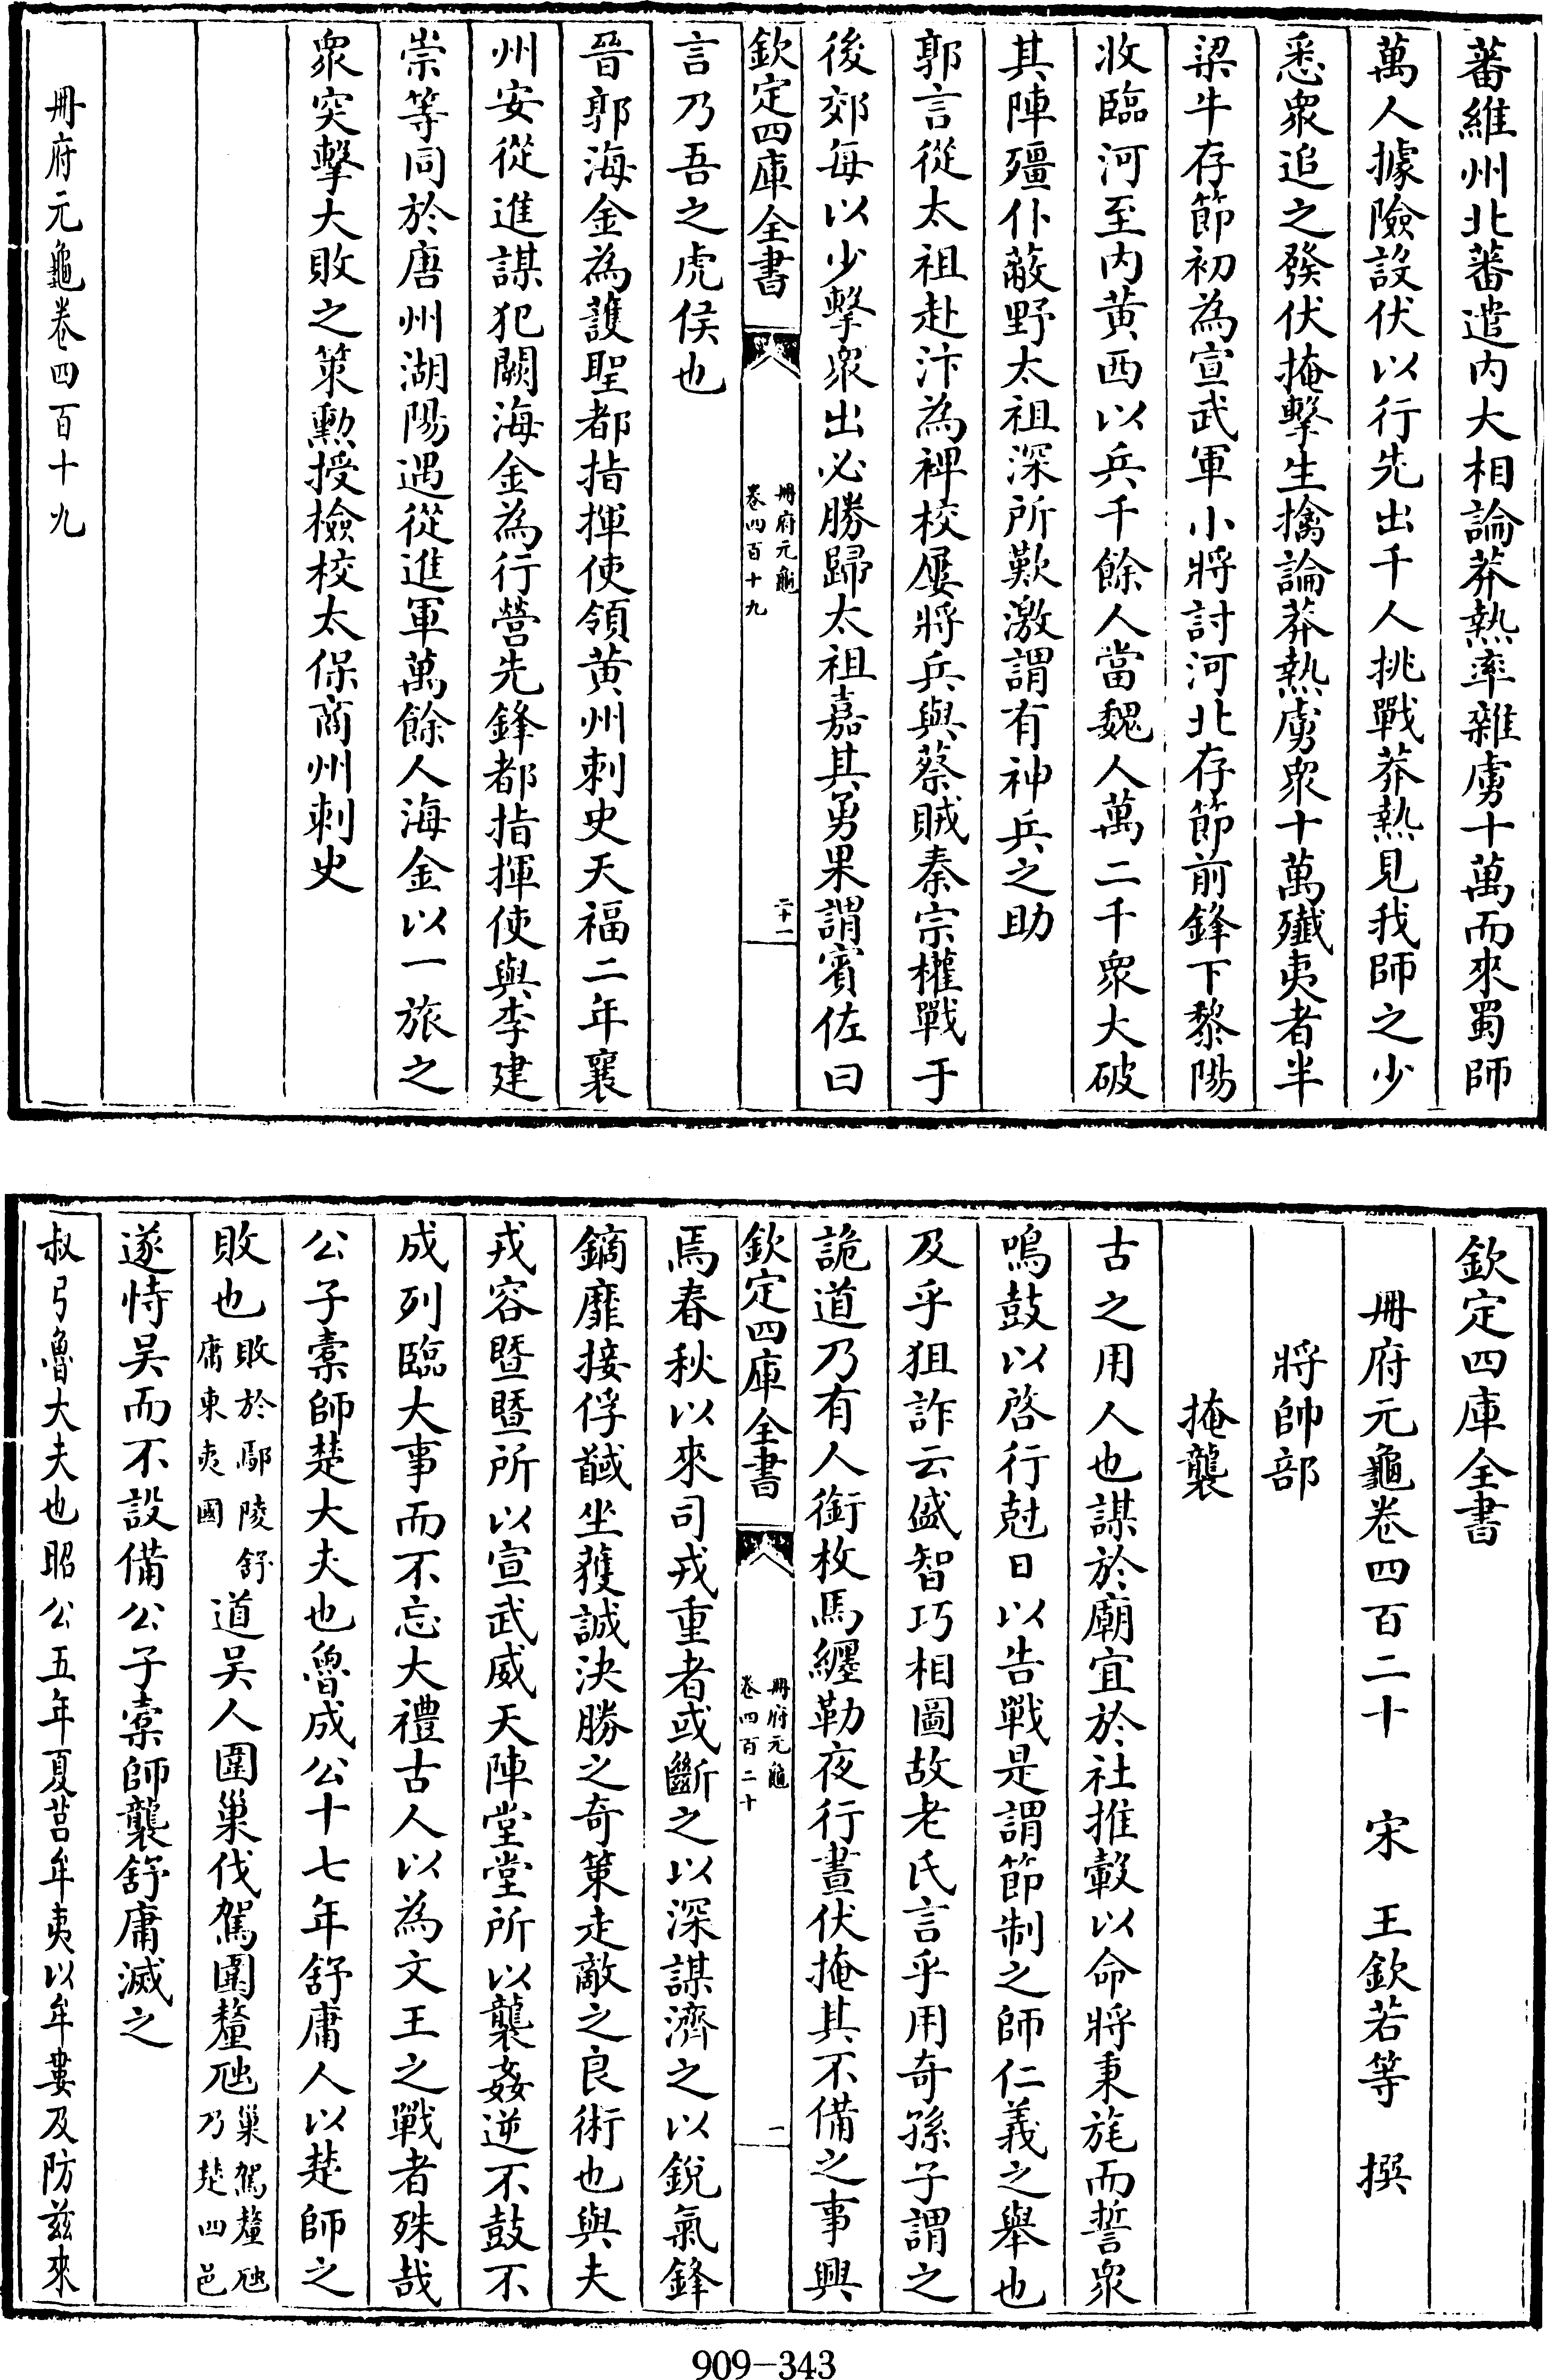 蕃維州北蕃遣内大相論莽熱率雜虜十萬而來蜀師
萬人據險設伏以行先出千人挑戰莽熱見我師之少
悉衆追之發伏掩擊生擒論莽熱虜衆十萬殲夷者半
梁牛存節初為宣武軍小將討河北存節前鋒下黎陽
收臨河至内黄西以兵千餘人當魏人萬二千衆大破
其陣殭仆蔽野太祖深所歎激謂有神兵之助
郭言從太祖赴汴為裨校屢將兵與蔡賊秦宗權戰于
後郊每以少擊衆出必勝歸太祖嘉其勇果謂賓佐曰
欽定四庫全書
冊府元龜
卷四百十九
二十一
言乃吾之虎侯也
晉郭海金為護聖都指揮使領黄州刺史天福二年襄
州安從進謀犯闕海金為行營先鋒都指揮使與李建
崇等同於唐州湖陽遇從進軍萬餘人海金以一旅之
衆突擊大敗之策勲授檢校太保商州刺史
冊府元龜卷四百十九
欽定四庫全書
冊府元龜卷四百二十 宋 王欽若等 撰
將帥部
掩襲
古之用人也謀於廟宜於社推轂以命將秉旄而誓衆
鳴鼓以啓行尅日以告戰是謂節制之師仁義之舉也
及乎狙詐云盛智巧相圖故老氏言乎用奇孫子謂之
詭道乃有人銜枚馬纒勒夜行晝伏掩其不備之事興
欽定四庫全書
冊府元龜
卷四百二十
一
焉春秋以來司戎重者或斷之以深謀濟之以銳氣鋒
鏑靡接俘馘坐獲誠決勝之奇策走敵之良術也與夫
戎容暨暨所以宣武威天陣堂堂所以襲姦逆不鼓不
成列臨大事而不忘大禮古人以為文王之戰者殊哉
公子橐師楚大夫也魯成公十七年舒庸人以楚師之
敗也敗於鄢陵舒庸東夷國道吳人圍巢伐駕圍釐虺巢駕釐虺乃楚四邑
遂恃吳而不設備公子橐師襲舒庸滅之
叔弓魯大夫也昭公五年夏莒牟夷以牟婁及防茲來
909-343